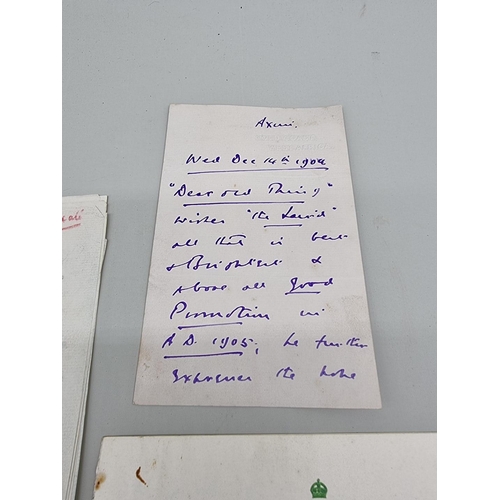 Axim.
Wed Dec 14th 1904
"Dear old Thing"
wishes "the Laird"
all that is best
& Brightest &
above all good
Promotion in
A.D. 1905; he further
expresses the hope